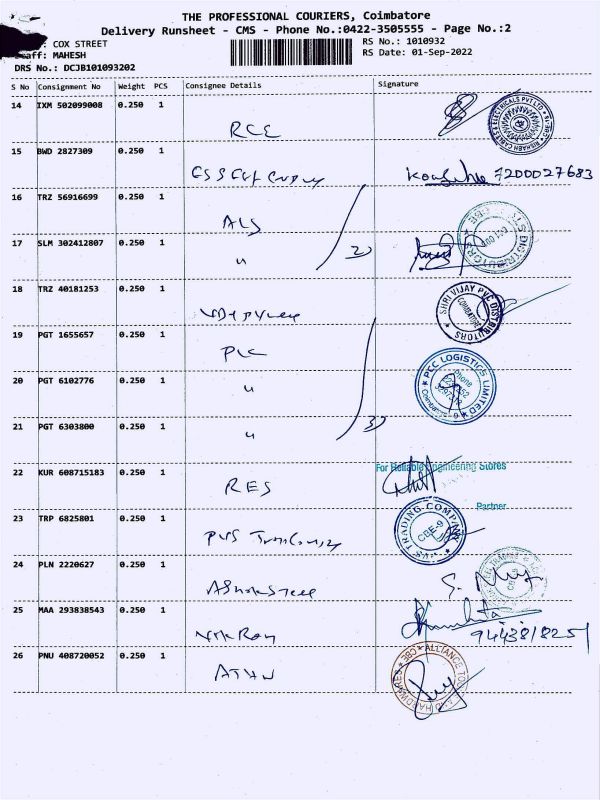 THE PROFESSIONAL COURIERS, Coimbatore
Delivery Runsheet - CMS - Phone No.:0422-3505555 - Page No.:2
: COX STREET
RS No.: 1010932
Staff: MAHESH
RS Date: 01-Sep-2022
DRS No.: DCJB101093202
S No Consignment No Weight PCS Consignee Details Signature
14 IXM 502099008 0.250 1
RCE
RISHABH CABLES & ELECTRICALS PVT LTD
15 BWD 2827309 0.250 1
7200027683
16 TRZ 56916699 0.250 1
ALS
17 SLM 302412807 0.250 1
"
ALS DISTRIBUTORS CBE
18 TRZ 40181253 0.250 1
SHRI VIJAY PVC DISTRIBUTORS
COIMBATORE
19 PGT 1655657 0.250 1
PLC
20 PGT 6102776 0.250 1
"
PCC LOGISTICS LIMITED
Phone
Coimbatore - 9
21 PGT 6303800 0.250 1
"
22 KUR 608715183 0.250 1
RES
For Reliable Engineering Stores
Partner
23 TRP 6825801 0.250 1
PVS
PVS TRADING COMPANY
CBE-9
24 PLN 2220627 0.250 1
25 MAA 293838543 0.250 1
9443818251
26 PNU 408720052 0.250 1
ATHW
ALLIANCE TOOLS AND HARDWARES CBE